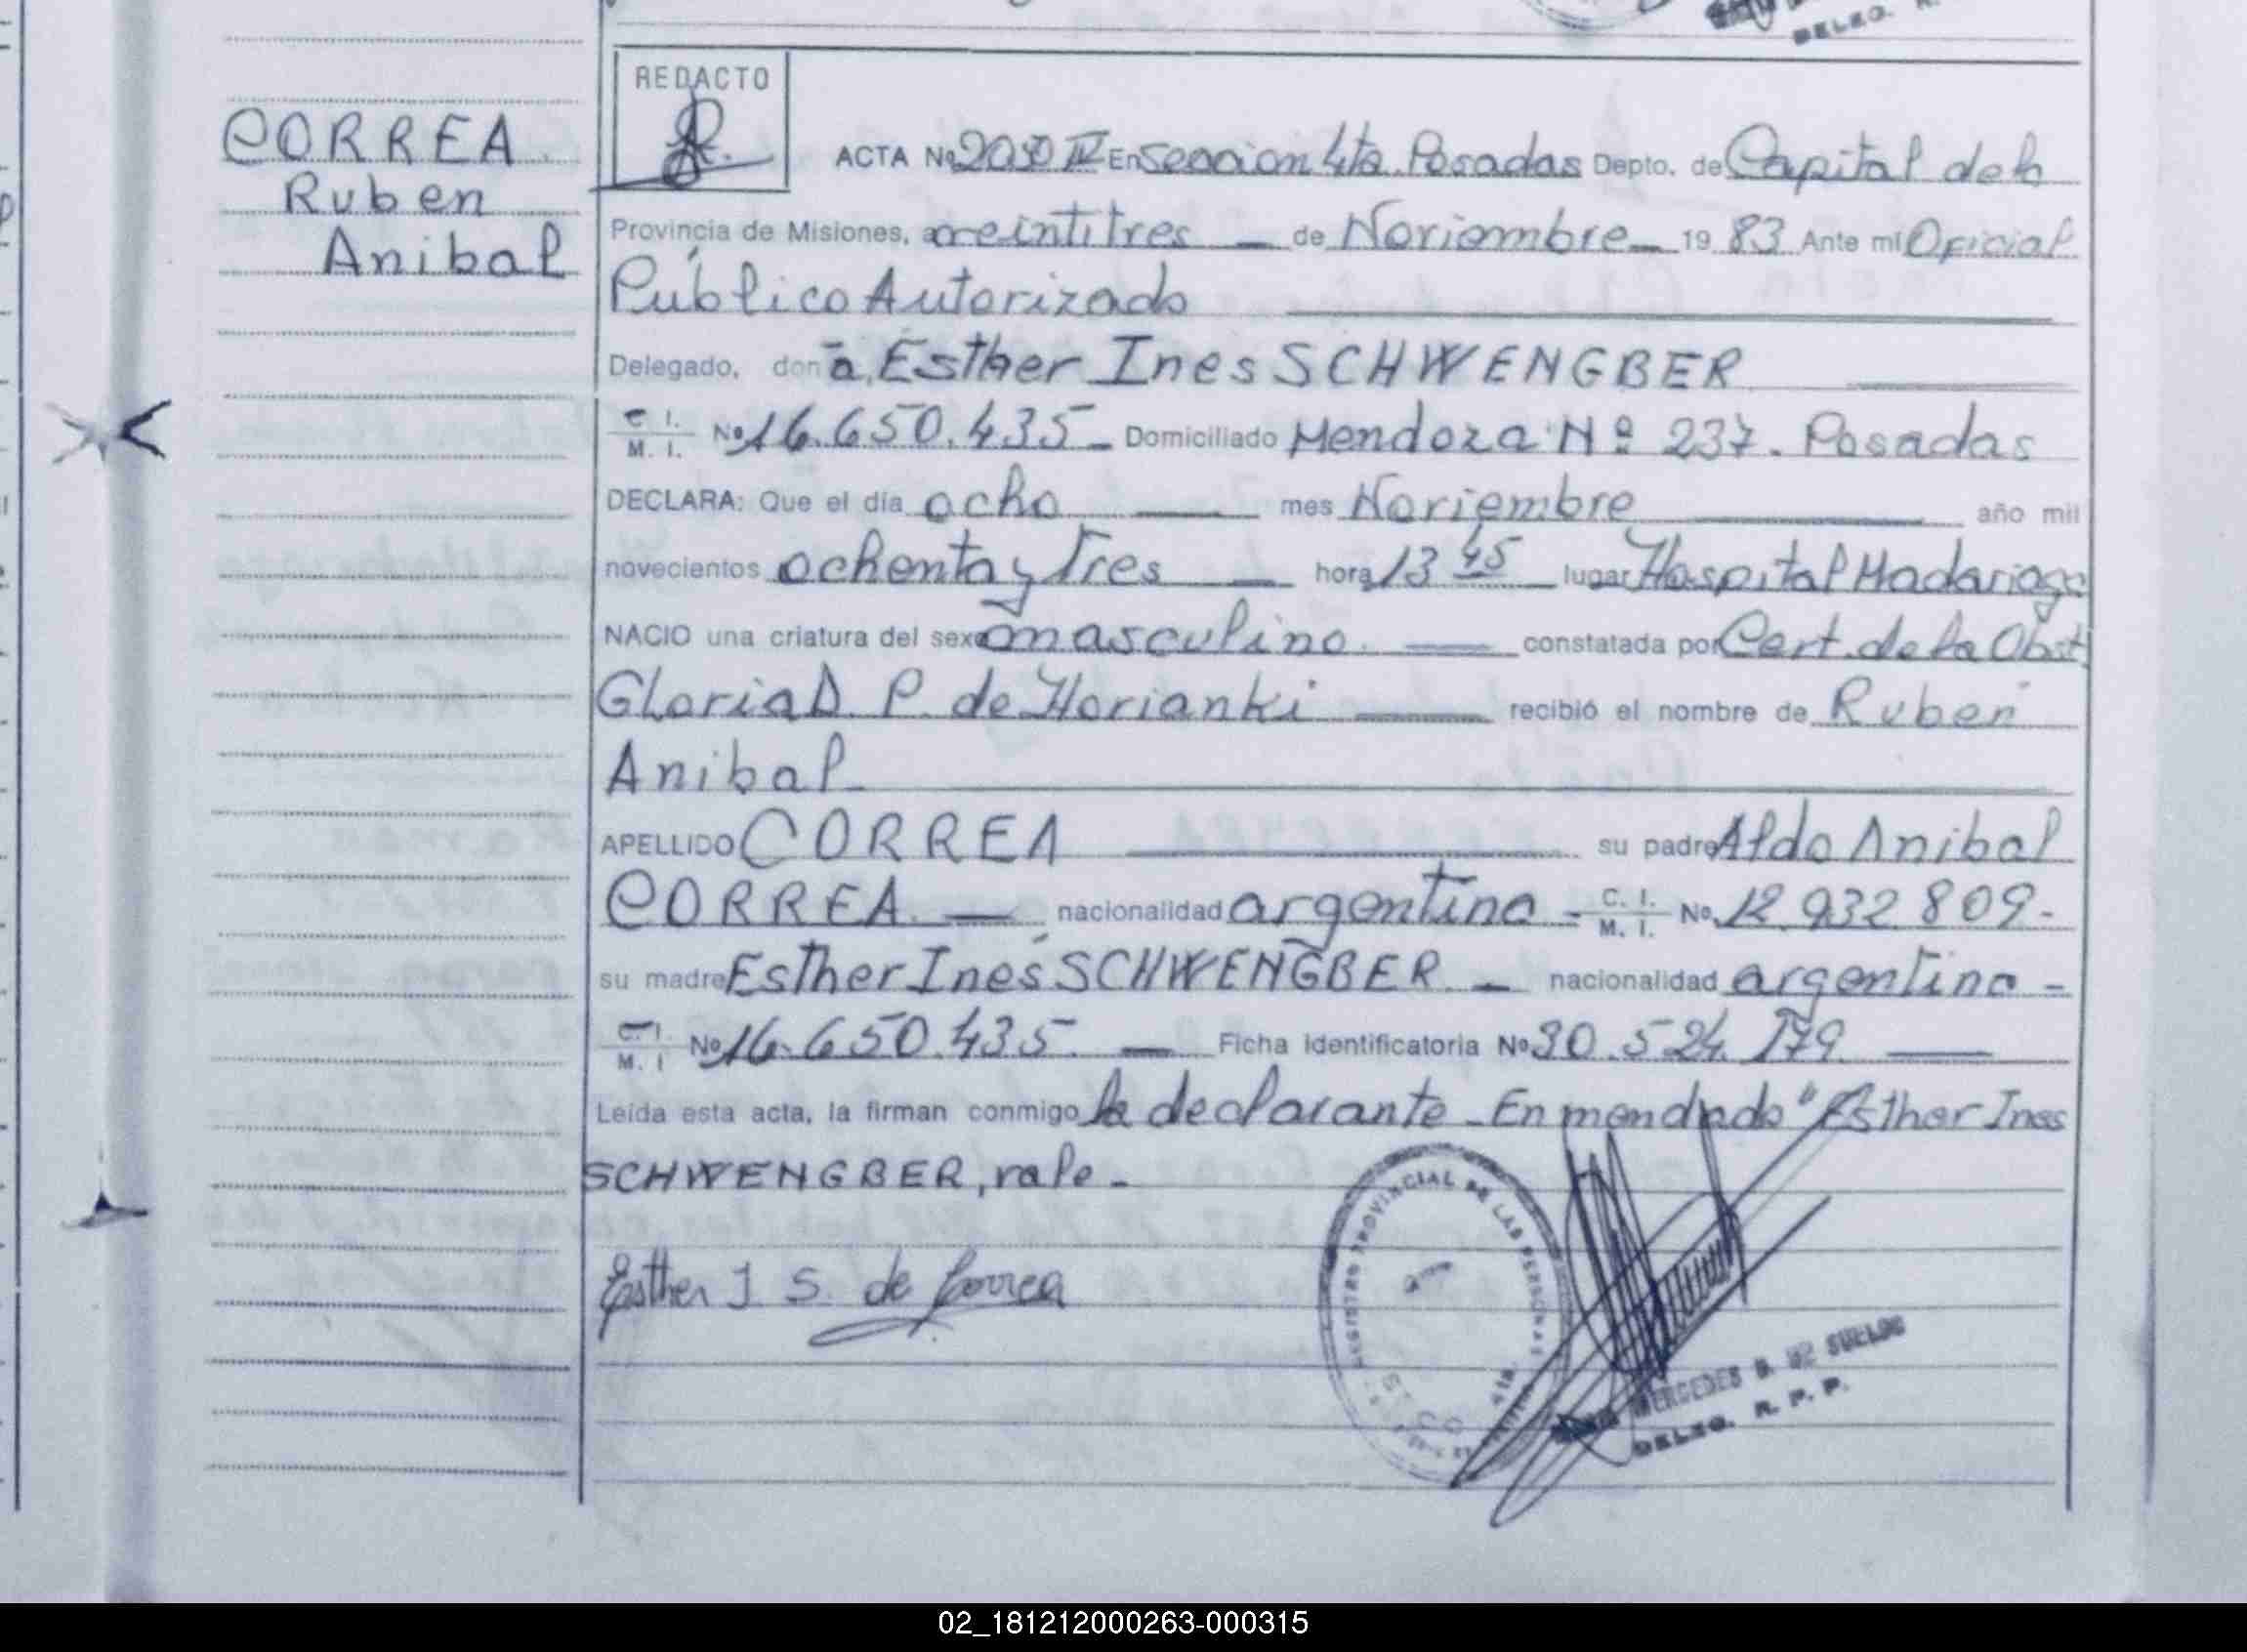 DELEG. R.
REDACTO
CORREA
Ruben
Anibal
ACTA Nº 2030 IV En seccion 4ta. Posadas Depto. de Capital de la
Provincia de Misiones, a veintitres — de Noviembre — 19 83 Ante mí Oficial
Público Autorizado
Delegado, don ña, Esther Ines SCHWENGBER
C. I. / M. I. Nº 16.650.435 - Domiciliado Mendoza Nº 237. Posadas
DECLARA: Que el día ocho — mes Noviembre — año mil
novecientos ochenta y Tres — hora 13 45 lugar Hospital Madariaga
NACIO una criatura del sexo masculino. — constatada por Cert. de la Obst.
Gloria D. P. de Horianki — recibió el nombre de Ruben
Anibal -
APELLIDO CORREA — su padre Aldo Anibal
CORREA. — nacionalidad argentina - C. I. / M. I. No. 12.932.809-
su madre Esther Inés SCHWENGBER - nacionalidad argentina -
C. I. / M. I Nº 16.650.435. — Ficha Identificatoria Nº 30.524.179 —
Leída esta acta, la firman conmigo la declarante - Enmendado "Esther Ines
SCHWENGBER, vale -
Esther I S. de Correa
REGISTRO PROVINCIAL DE LAS PERSONAS
MERCEDES B. DE SUELDO
DELEG. R. P. P.
02_181212000263-000315